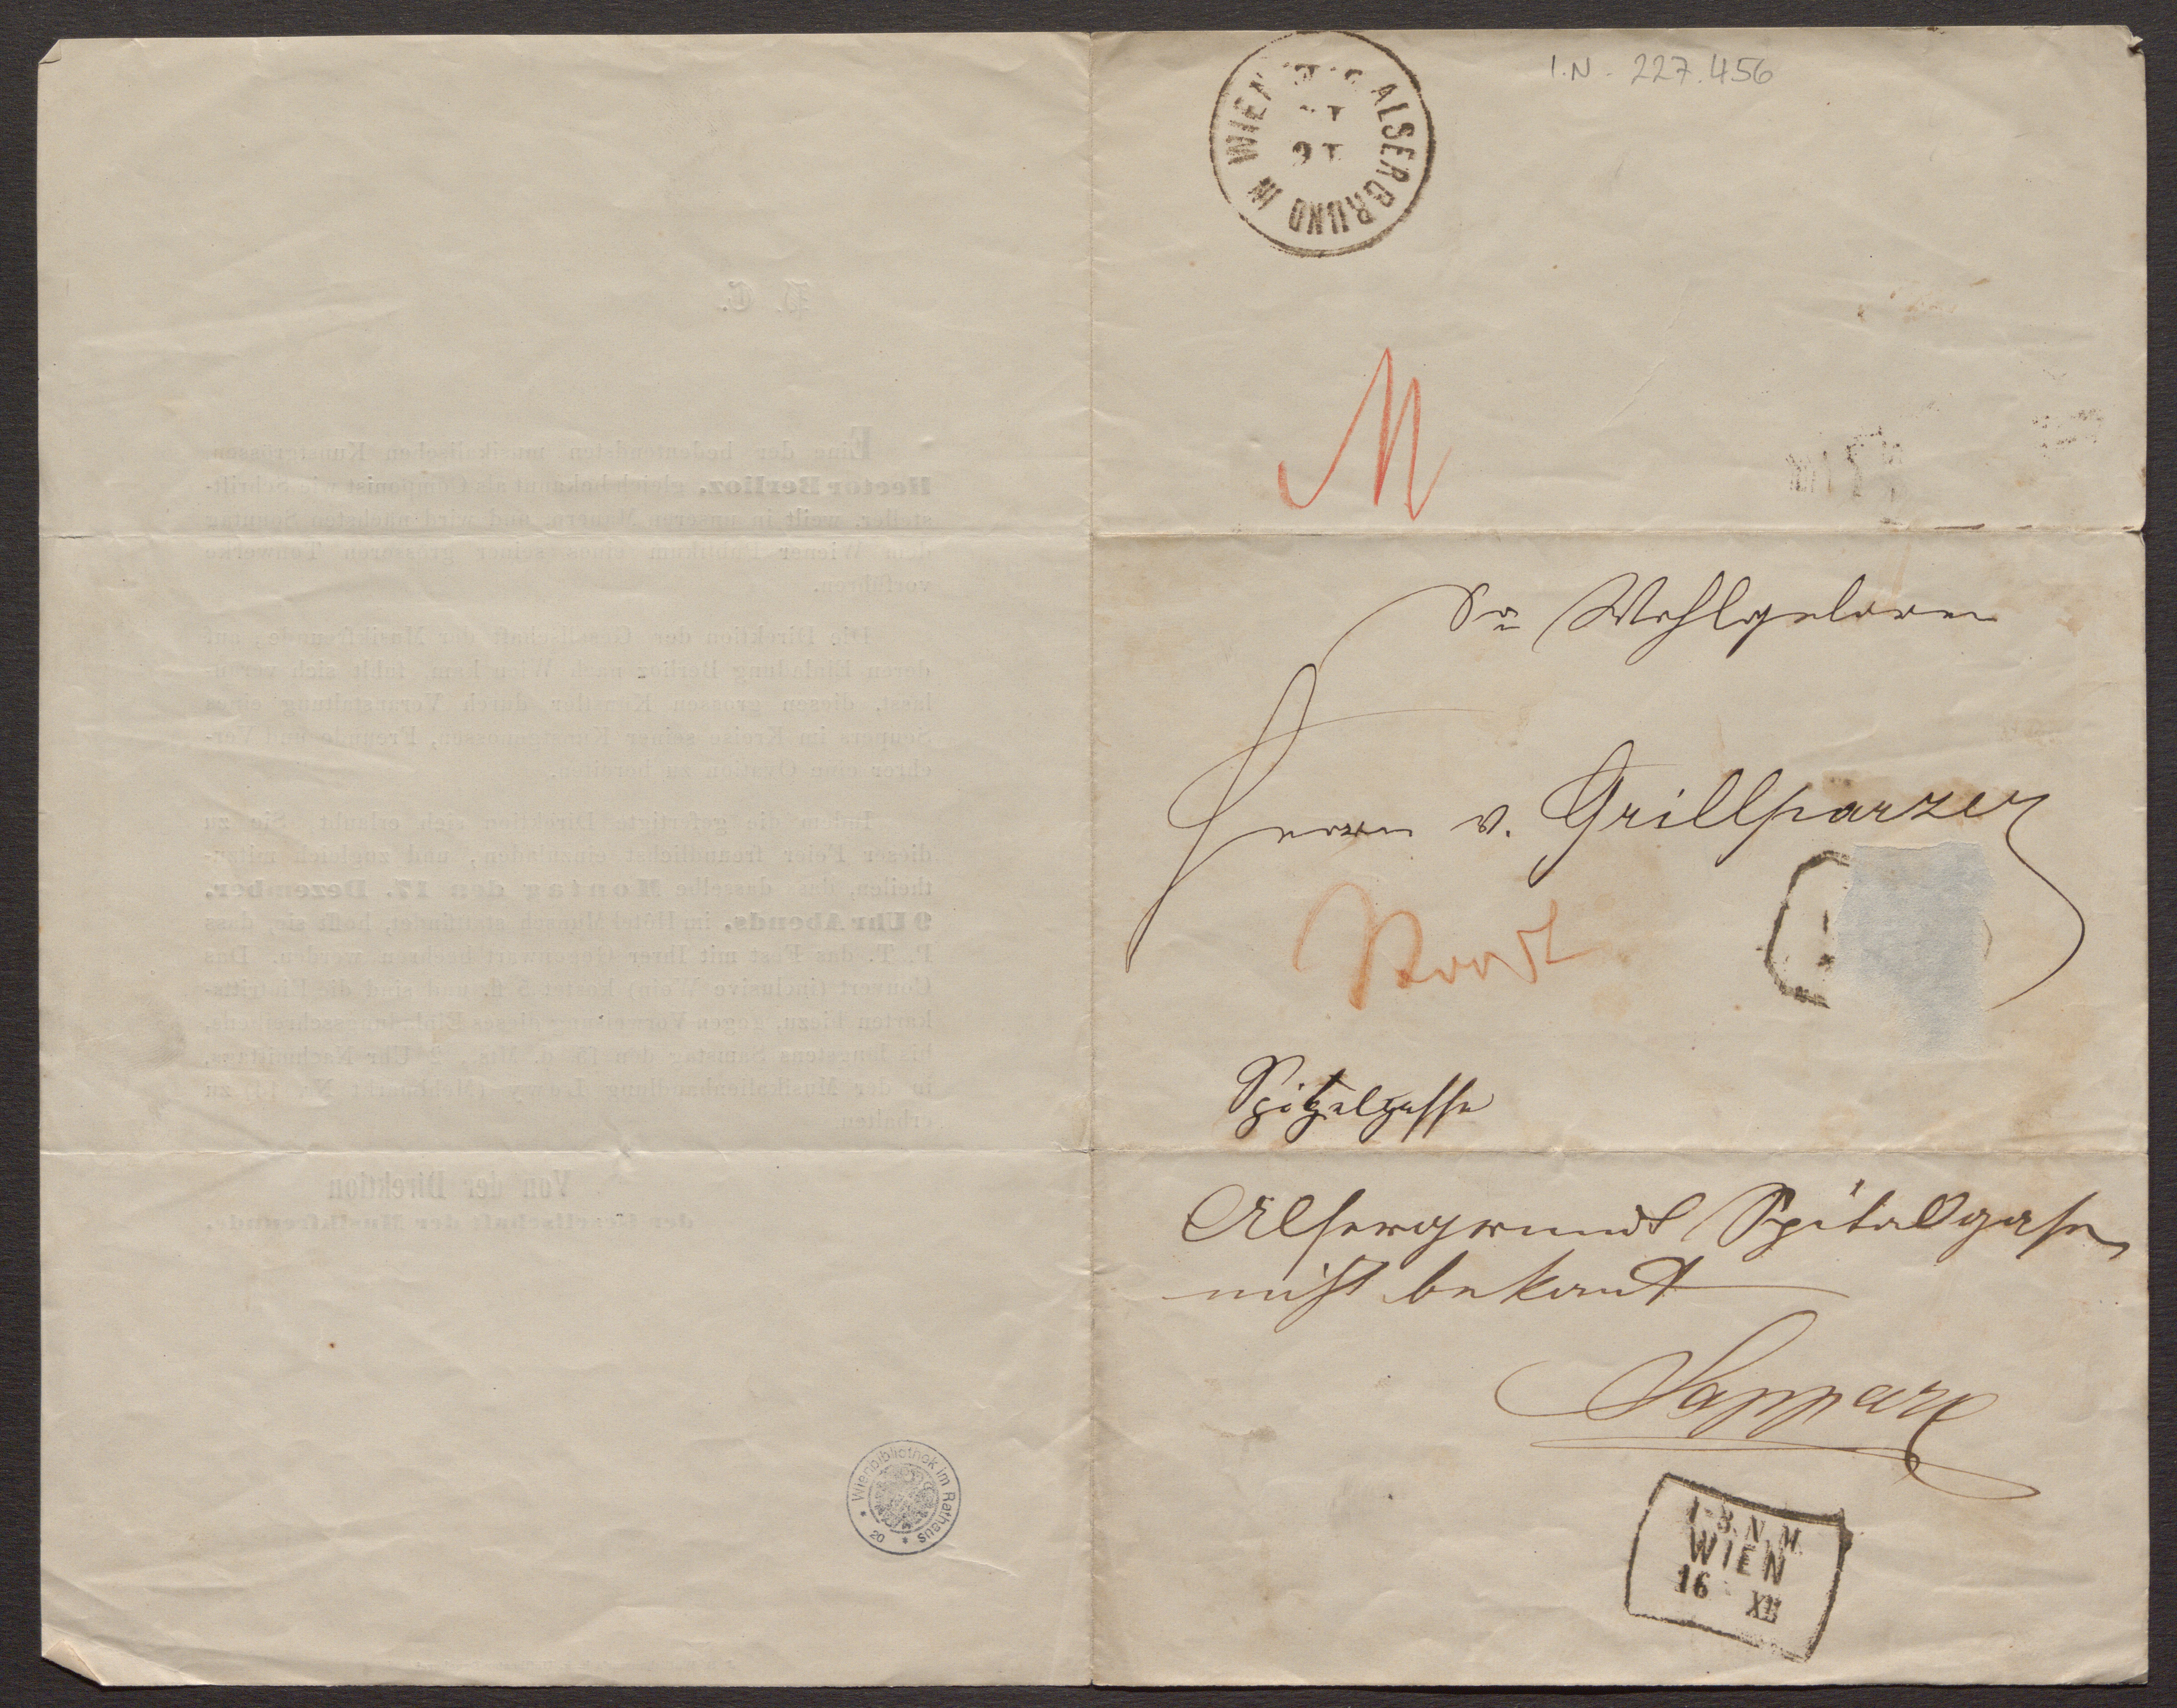 I.N. 227.456
ALSERGRUND IN WIEN
M
Sr Wohlgeboren
Herrn v. Grillparzer
Spitalgasse
Alsergrund Spitalgasse
nicht bekant
1-3. N. M.
WIEN
16 XII
Wienbibliothek im Rathaus
20
P. T.
Eine der bedeutendsten musikalischen Kunstgrössen,
Hector Berlioz, gleich bekannt als Componist wie Schrift-
steller, weilt in unseren Mauern und wird nächsten Sonntag
dem Wiener Publikum eines seiner grösseren Tonwerke
vorführen.
Die Direktion der Gesellschaft der Musikfreunde, auf
deren Einladung Berlioz nach Wien kam, fühlt sich veran-
lasst, diesen grossen Künstler durch Veranstaltung eines
Soupers im Kreise seiner Kunstgenossen, Freunde und Ver-
ehrer eine Ovation zu bereiten.
Indem die gefertigte Direktion sich erlaubt, Sie zu
dieser Feier freundlichst einzuladen, und zugleich mitzu-
theilen, dass dasselbe Montag den 17. Dezember,
9 Uhr Abends, im Hôtel Munsch stattfindet, hofft sie, dass
P. T. das Fest mit Ihrer Gegenwart beehren werden. Das
Couvert (inclusive Wein) kostet 5 fl. und sind die Eintritts-
karten hiezu, gegen Vorweisung dieses Einladungsschreibens,
bis längstens Samstag den 15. d. Mts., 2 Uhr Nachmittags,
in der Musikalienhandlung zu
erhalten.
Von der Direktion
der Gesellschaft der Musikfreunde.